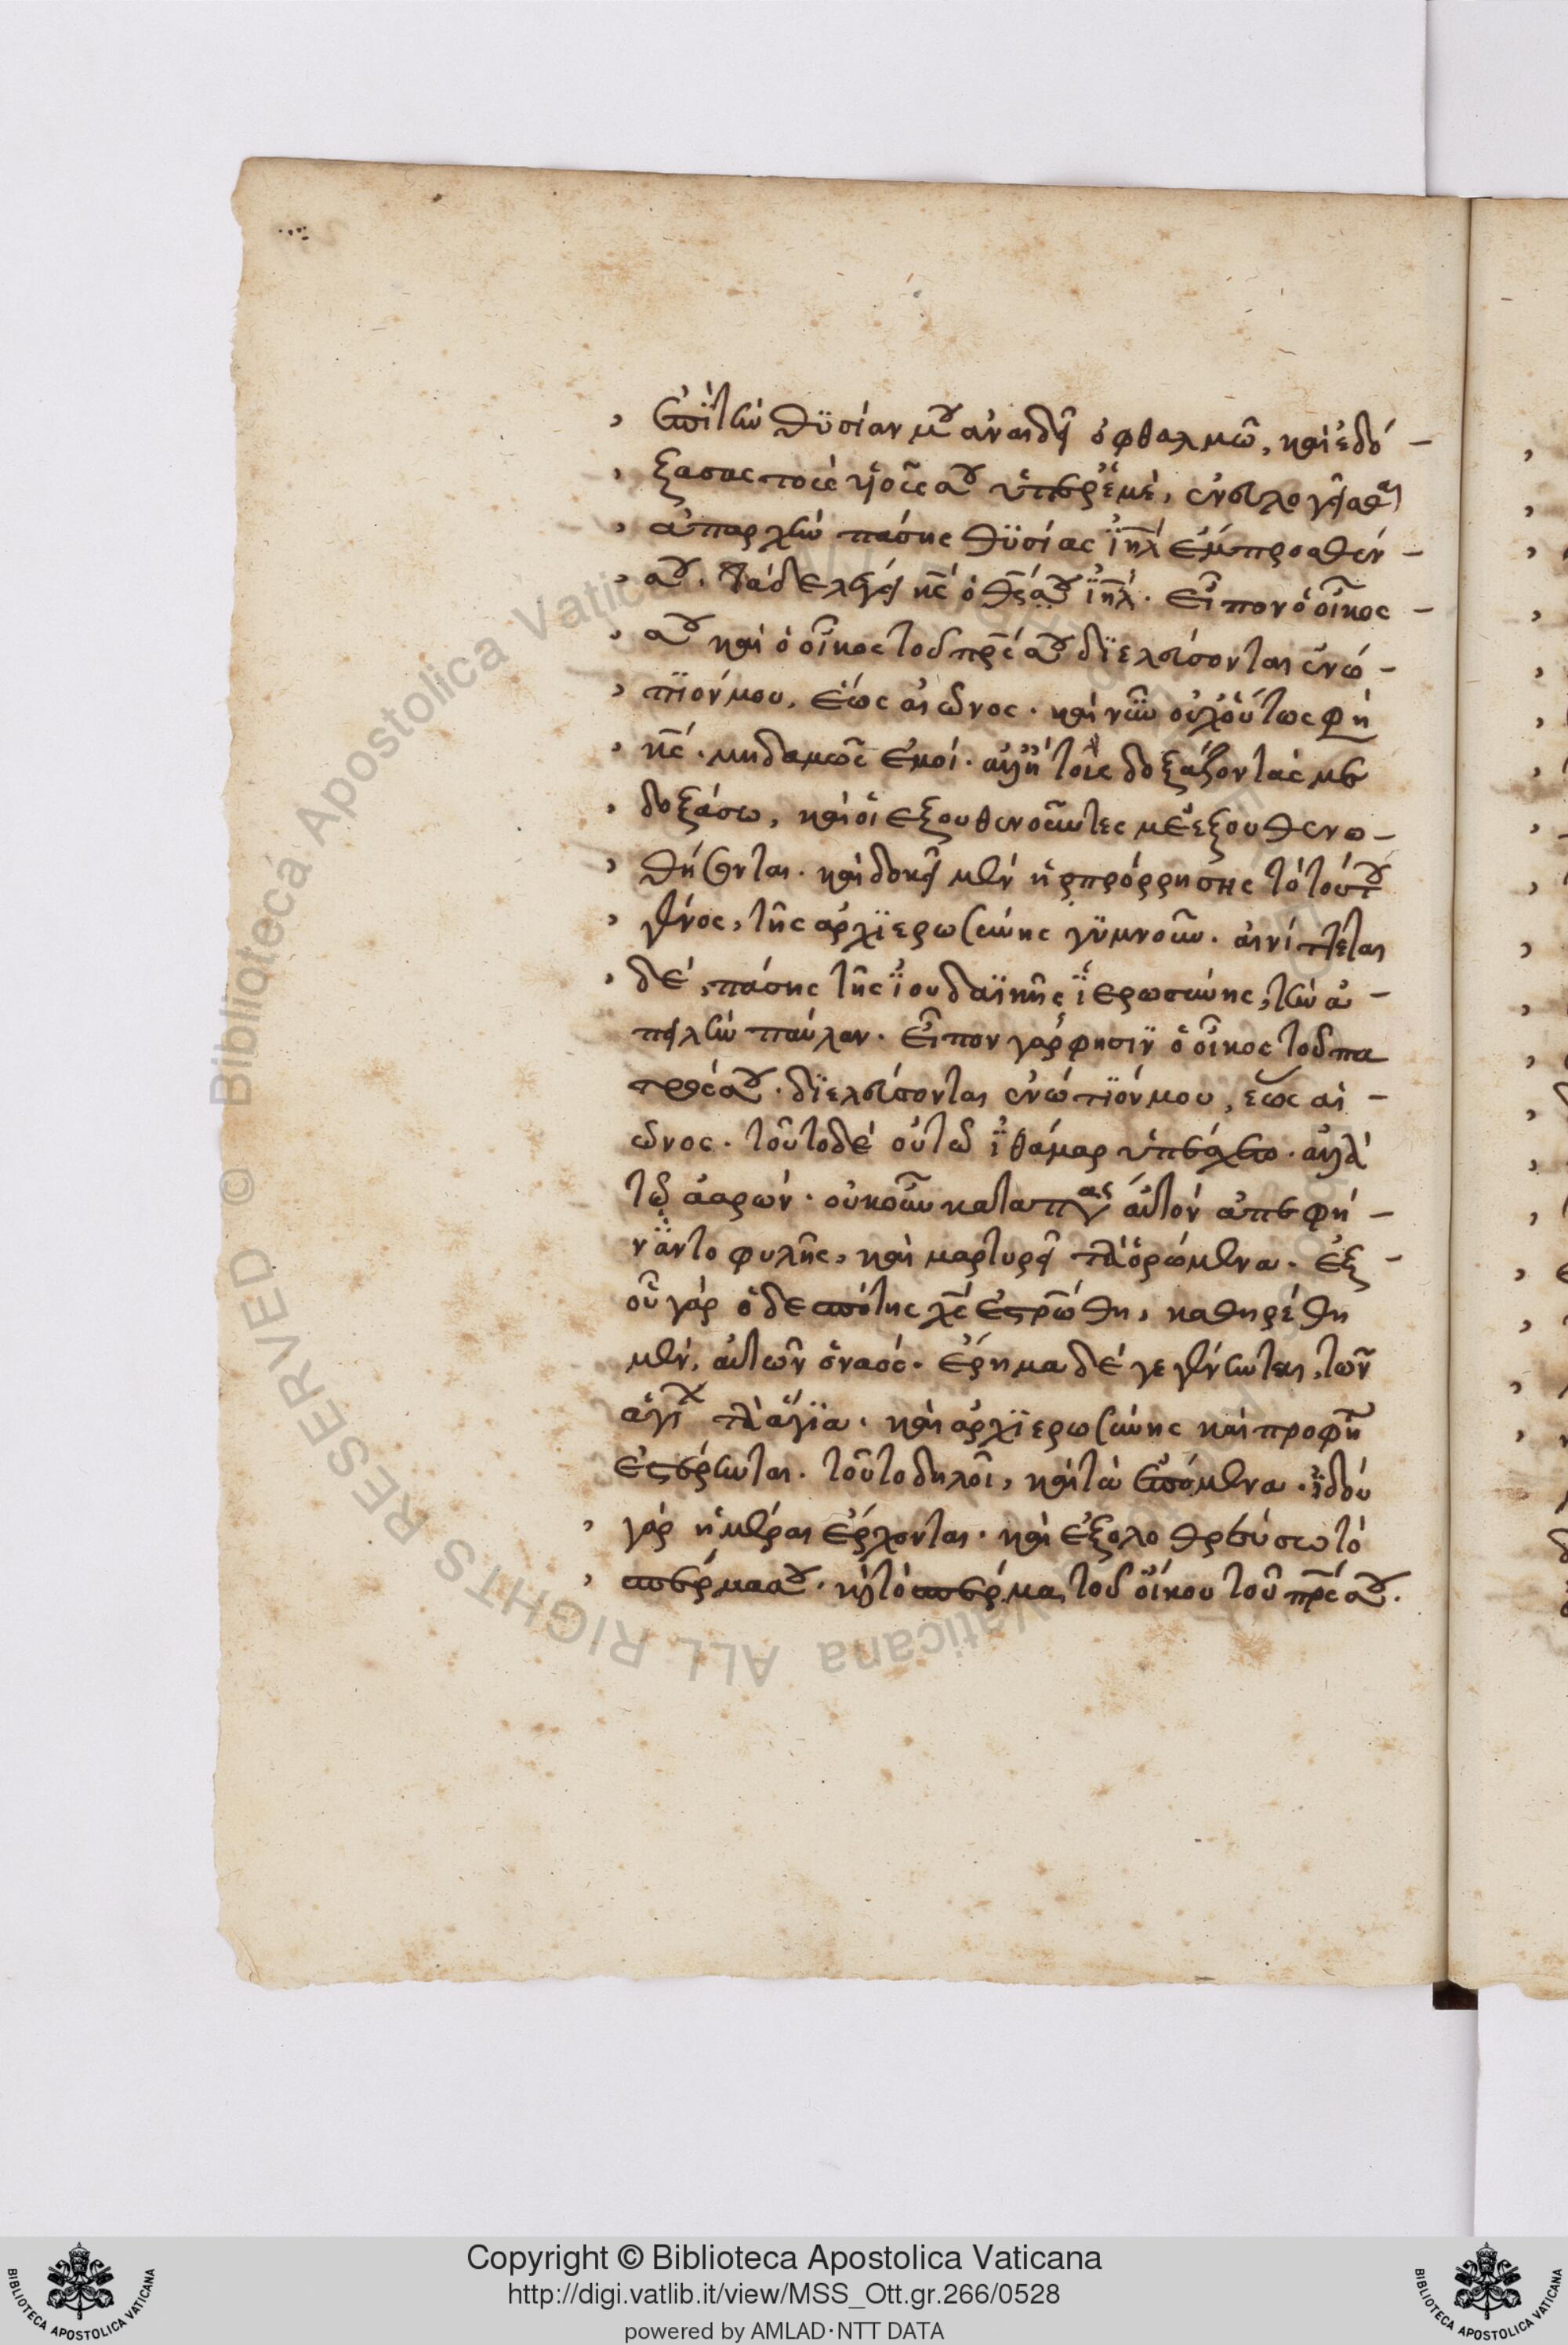 , ἐπὶ τὴν θϋσίαν μου ἀναιδεῖ ὀφθαλμῶ, καὶ ἐδό -
, ξασας τοὺς υἱούς σου ὑπὲρ ἐμὲ, ἐνευλογεῖσθαι
, ἀπαρχὴν πάσης θϋσίας ϊηλ ἔμπροσθέν -
, σου. τάδε λέγει κς ὁ θς σου ϊηλ. εἶπον ὁ οἶκος -
, σου καὶ ὁ οἶκος τοῦ πρς σου δϊελεύσονται ἐνώ -
, πϊόν μου, ἕως αἰῶνος. καὶ νῦν οὐχ οὕτως φη
, κς. μηδαμῶς ἐμοί. ἀλλ' ἢ τοὺς δοξάζοντάς με
, δοξάσω, καὶ οἱ ἐξουθενοῦντές με ἐξουθενω -
, θήσονται. καὶ δοκεῖ μὲν ἡ πρόρρησις τὸ τούτου
, γένος, τῆς ἀρχϊερωσύνης γϋμνοῦν. αἰνίττεται
, δὲ, πάσης τῆς ϊουδαϊκῆς ϊερωσύνης, τὴν ἀ -
πειλὴν παύλαν. εἶπον γάρ φησϊν ὁ οἶκος τοῦ πα
τρός σου. δϊελεύσονται ἐνώπϊόν μου, ἕως αἰ -
ῶνος. τοῦτο δὲ οὐ τῶ ϊθάμαρ ὑπέσχετο. ἀλλὰ
τῶ ἀαρών. οὐκοῦν κατὰ πας αὐτὸν ἀπεφή -
ναντο φυλῆς, καὶ μαρτυρεῖ τὰ ὁρώμενα. ἐξ -
οὗ γὰρ ὁ δεσπότης χς ἐςρώθη, καθηρέθη
μὲν, αὐτῶν ὁ ναός. ἔρημα δὲ γεγένηται, τῶν
ἁγί τὰ ἅγϊα. καὶ ἀρχϊερωσύνης καὶ προφη
ἐςέρηνται. τοῦτο δηλοῖ, καὶ τὰ ἑπόμενα. ϊδοὺ
, γὰρ ἡμέραι ἔρχονται. καὶ ἐξολοθρεύσω τὸ
, σπέρμα σου. καὶ τὸ σπέρμα τοῦ οἴκου τοῦ πρς σου.
Copyright © Biblioteca Apostolica Vaticana
http://digi.vatlib.it/view/MSS_Ott.gr.266/0528
powered by AMLAD·NTT DATA